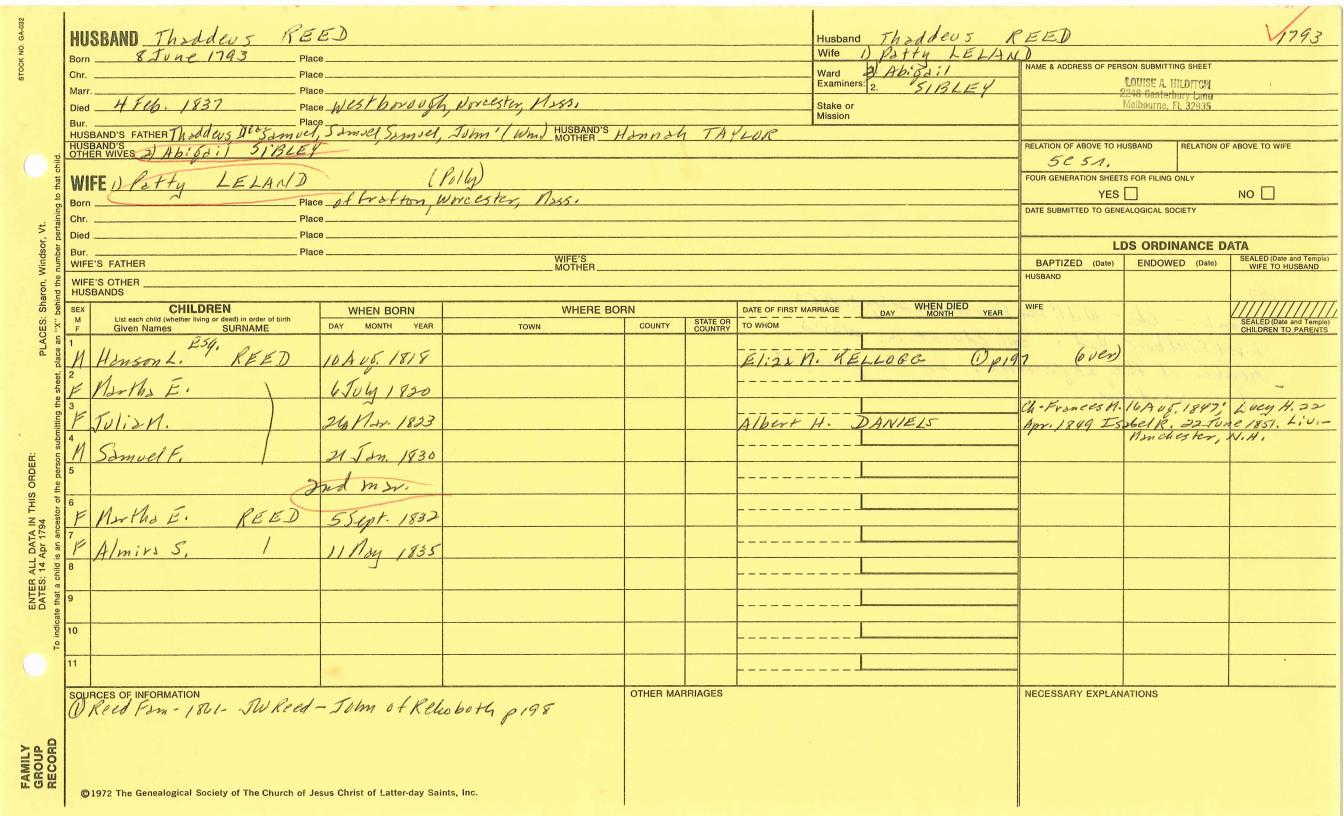 STOCK NO. GA-032
HUSBAND Thaddeus REED
Born 8 June 1793 Place
Chr. Place
Marr. Place
Died 4 Feb. 1837 Place Westborough, Worcester, Mass.
Bur. Place
HUSBAND'S FATHER Thaddeus Samuel, Samuel, Samuel, John (Wm) HUSBAND'S MOTHER Hannah TAYLOR
HUSBAND'S OTHER WIVES 2) Abigail SIBLEY
WIFE 1) Patty LELAND (Polly)
Born Place of Grafton, Worcester, Mass.
Chr. Place
Died Place
Bur. Place
WIFE'S FATHER WIFE'S MOTHER
WIFE'S OTHER HUSBANDS
Husband Thaddeus REED 1793
Wife 1) Patty LELAND
Ward 2) Abigail
Examiners: 2. SIBLEY
Stake or Mission
NAME & ADDRESS OF PERSON SUBMITTING SHEET
LOUISE A. HILDITCH
2246 Canterbury Lane
Melbourne, FL 32935
RELATION OF ABOVE TO HUSBAND RELATION OF ABOVE TO WIFE
FOUR GENERATION SHEETS FOR FILING ONLY
YES NO
DATE SUBMITTED TO GENEALOGICAL SOCIETY
LDS ORDINANCE DATA
BAPTIZED (Date) ENDOWED (Date) SEALED (Date and Temple) WIFE TO HUSBAND
HUSBAND
WIFE
SEALED (Date and Temple) CHILDREN TO PARENTS
SEX M F
CHILDREN
List each child (whether living or dead) in order of birth
Given Names SURNAME
WHEN BORN
DAY MONTH YEAR
WHERE BORN
TOWN COUNTY STATE OR COUNTRY
DATE OF FIRST MARRIAGE
TO WHOM
WHEN DIED
DAY MONTH YEAR
1 M Hanson L. Esq. REED 10 Aug. 1818 Eliza M. KELLOGG ① p197 (over)
2 F Martha E. 6 July 1820
3 F Julia M. 26 Mar. 1823 Albert H. DANIELS
Ch-Frances M. 16 Aug. 1847; Lucy H. 22
Apr. 1849 Isabel R. 22 June 1851. Liv.-
Manchester, N.H.
4 M Samuel F. 21 Jan. 1830
5 2nd mar.
6 F Martha E. REED 5 Sept. 1832
7 F Almira S. 11 May 1835
8
9
10
11
SOURCES OF INFORMATION
① Reed Fam - 1861 - JW Reed - John of Rehoboth p198
OTHER MARRIAGES
NECESSARY EXPLANATIONS
©1972 The Genealogical Society of The Church of Jesus Christ of Latter-day Saints, Inc.
FAMILY GROUP RECORD
ENTER ALL DATA IN THIS ORDER:
DATES: 14 Apr 1794 PLACES: Sharon, Windsor, Vt.
To indicate that a child is an ancestor of the person submitting the sheet, place an "X" behind the number pertaining to that child.